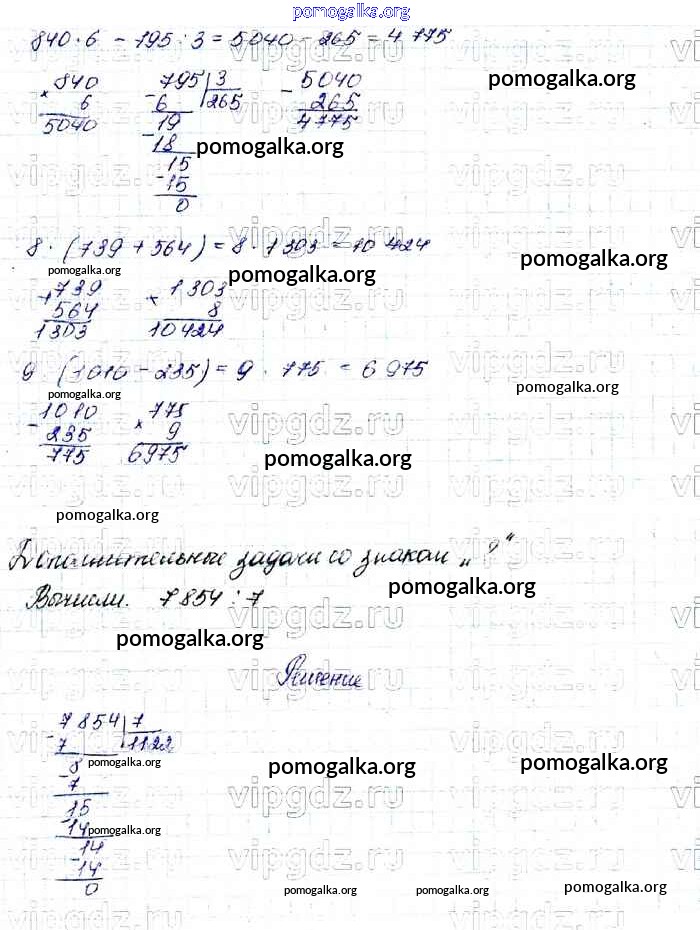 pomogalka.org
840·6 - 795:3 = 5040 - 265 = 4775
× 840 795 | 3 - 5040
6 - 6 | 265 265
5040 19 4775
- 18
15
- 15
0
pomogalka.org
pomogalka.org
8·(739 + 564) = 8·1303 = 10424
pomogalka.org pomogalka.org pomogalka.org
+ 739 × 1303
564 8
1303 10424
9·(1010 - 235) = 9·775 = 6975
pomogalka.org
- 1010 × 775
235 9
775 6975
pomogalka.org
pomogalka.org
задачи со знаком „?“
pomogalka.org
Вычисли. 7854:7
pomogalka.org
Решение
7854 | 7
- 7 | 1122
8
- 7
15
- 14
14
- 14
0
pomogalka.org
pomogalka.org
pomogalka.org
pomogalka.org
pomogalka.org
pomogalka.org
pomogalka.org
vipgdz.ru